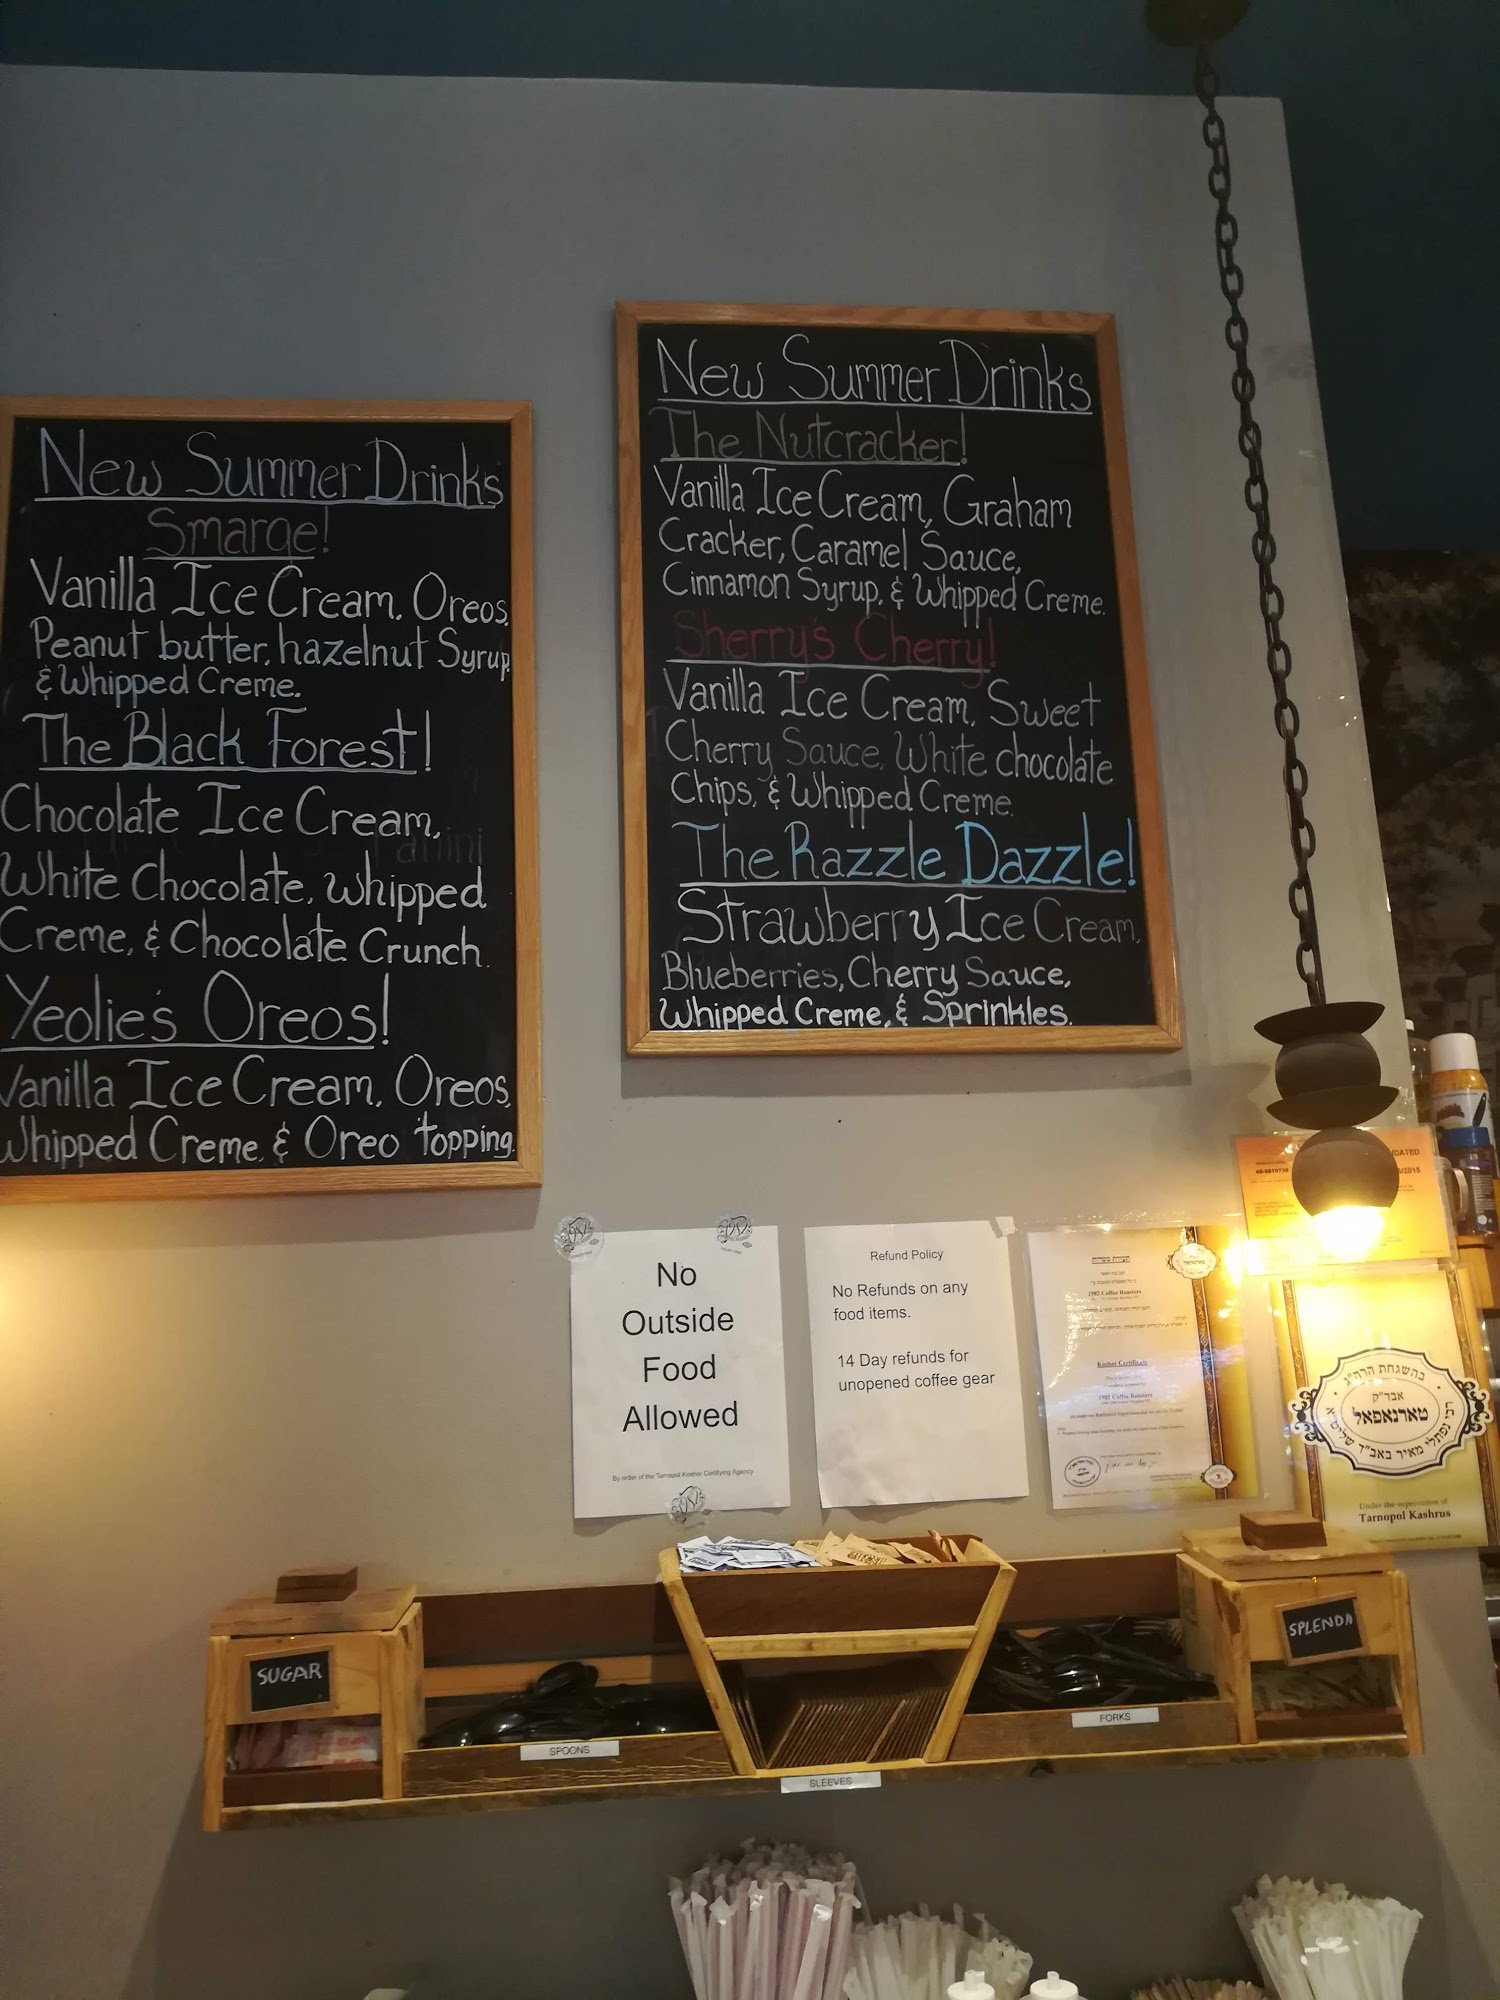 New Summer Drinks
Smarge!
Vanilla Ice Cream, Oreos,
Peanut butter, hazelnut Syrup,
& Whipped Creme.
The Black Forest!
Chocolate Ice Cream,
White Chocolate, Whipped
Creme, & Chocolate Crunch.
Yeolie's Oreos!
Vanilla Ice Cream, Oreos,
Whipped Creme, & Oreo topping.
New Summer Drinks
The Nutcracker!
Vanilla Ice Cream, Graham
Cracker, Caramel Sauce,
Cinnamon Syrup, & Whipped Creme.
Sherry's Cherry!
Vanilla Ice Cream, Sweet
Cherry Sauce, White chocolate
Chips, & Whipped Creme.
The Razzle Dazzle!
Strawberry Ice Cream,
Blueberries, Cherry Sauce,
Whipped Creme, & Sprinkles.
1982
1982
No
Outside
Food
Allowed
By order of the Tarnapol Kosher Certifying Agency
1982
Refund Policy
No Refunds on any
food items.
14 Day refunds for
unopened coffee gear
1982 Coffee Roasters
Kosher Certificate
1982 Coffee Roasters
בהשגחת הרה"ג
אבד"ק
טארנאפאל
רבי נפתלי מאיר באב"ד שליט"א
Under the supervision of
Tarnopol Kashrus
SUGAR
SPOONS
SLEEVES
FORKS
SPLENDA